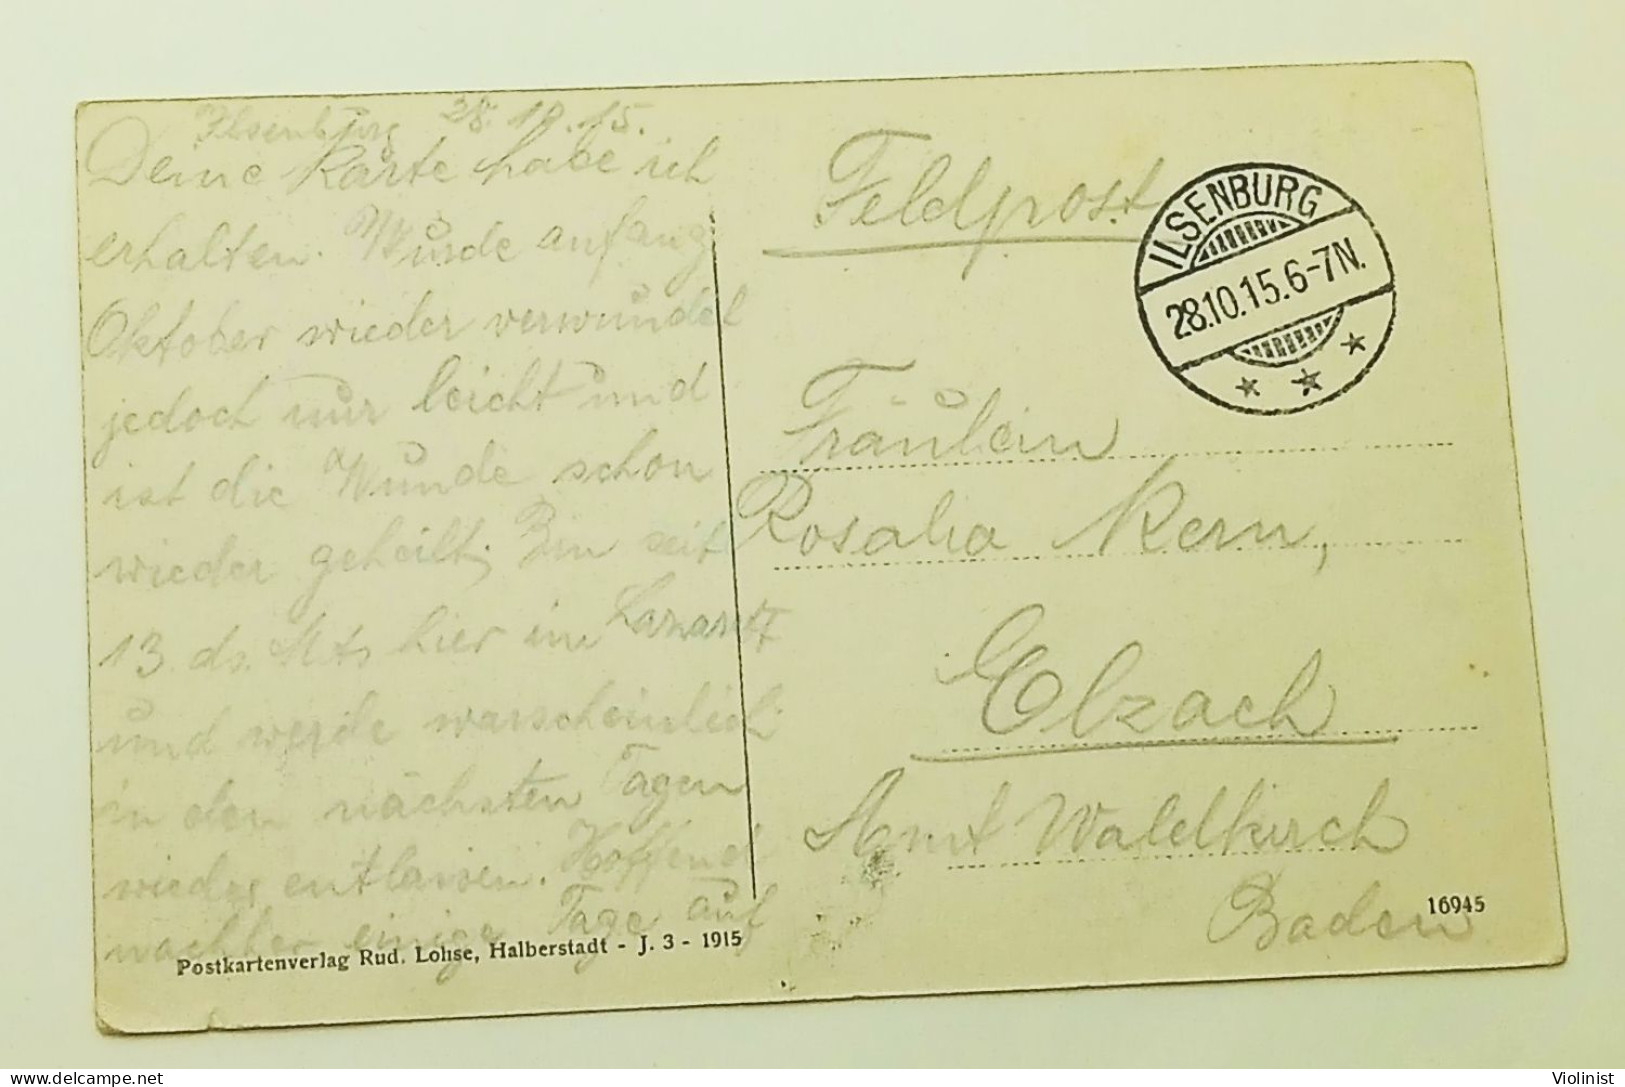 Ilsenburg 28.10.15.
Deine Karte habe ich
erhalten. Wurde anfang
Oktober wieder verwundet
jedoch nur leicht und
ist die Wunde schon
wieder geheilt; Bin seit
13. ds. Mts hier im Lazarett
und werde warscheinlich
in den nächsten Tagen
wieder entlassen. Hoffend
nachher einige Tage auf
Postkartenverlag Rud. Lohse, Halberstadt - J. 3 - 1915
Feldpost
ILSENBURG
28.10.15.6-7N.
Fräulein
Rosalia Kern,
Elzach
Amt Waldkirch
Baden
16945
Violinist